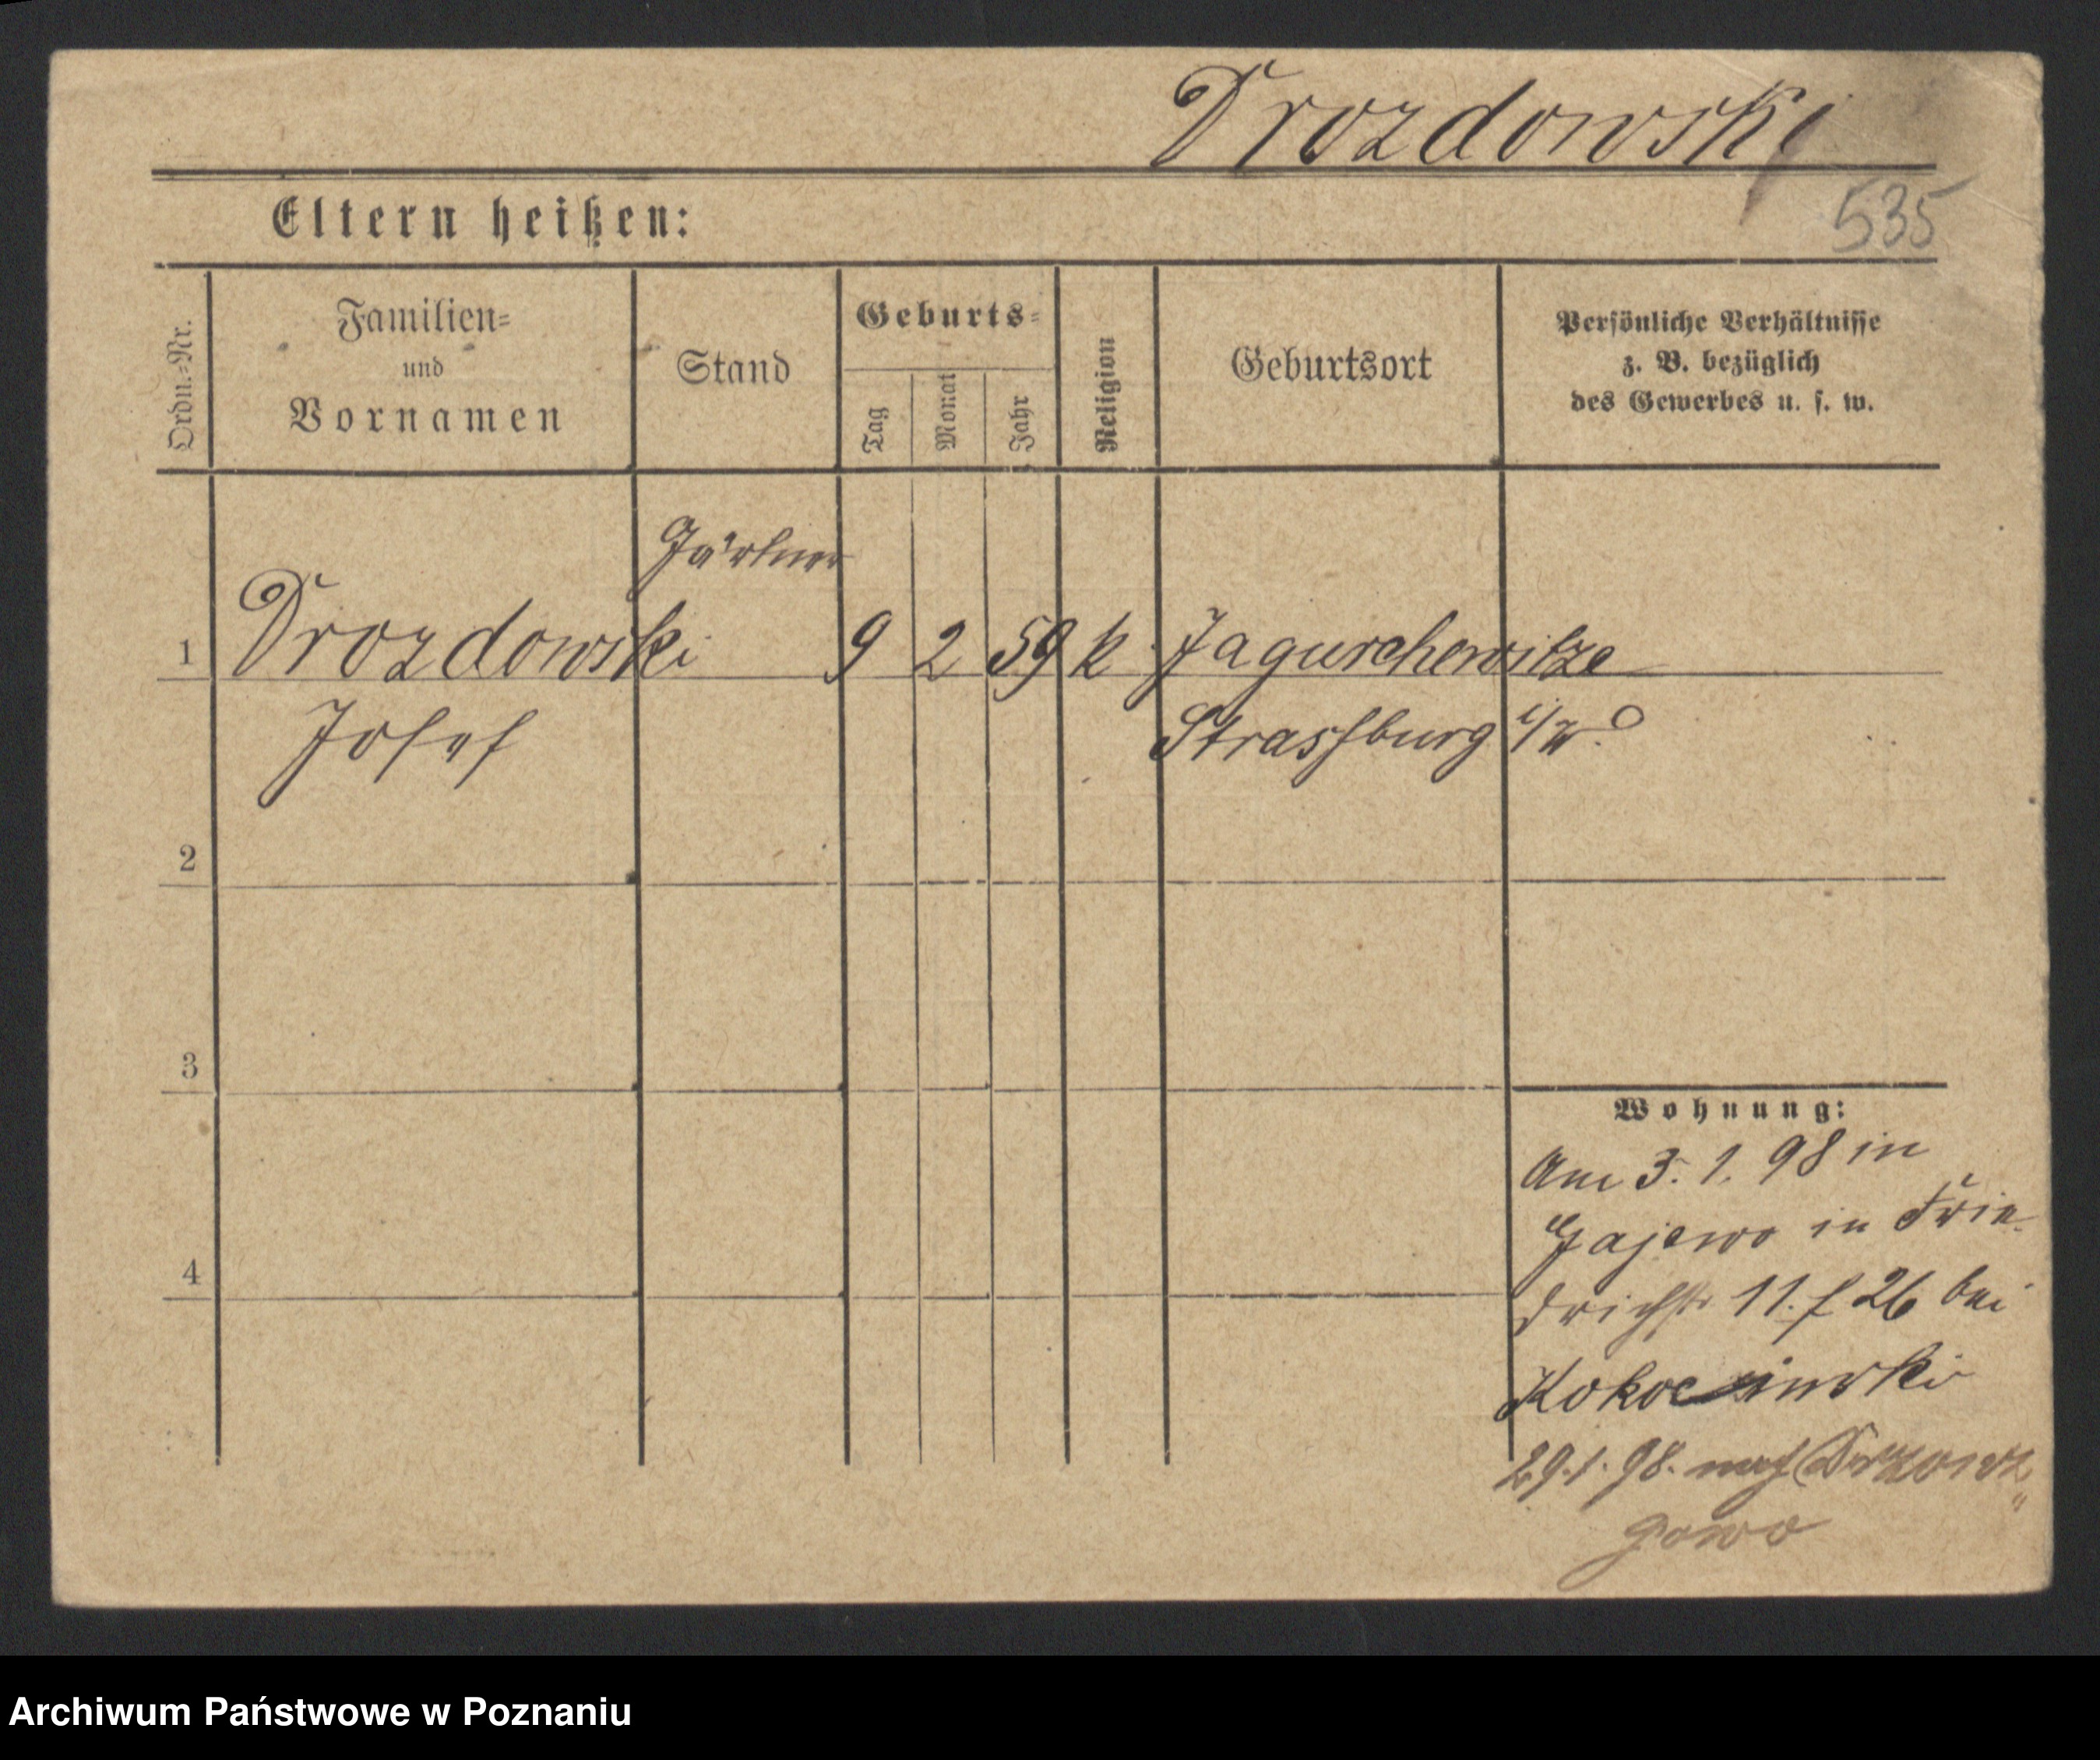 Drozdowski
535
Eltern heißen:
Ordn.-Nr.
Familien-
und
Vornamen
Stand
Geburts-
Tag
Monat
Jahr
Religion
Geburtsort
Persönliche Verhältnisse
z. B. bezüglich
des Gewerbes u. s. w.
Gärtner
1 Drozdowski 9 2 59 k Jagurchewitze
Josef Strassburg i/W.
2
3
4
Wohnung:
Am 3. 1. 98 in
Gajewo in Frie-
drichstr 11. f 26 bei
29.1.98. nach
gowo
Archiwum Państwowe w Poznaniu